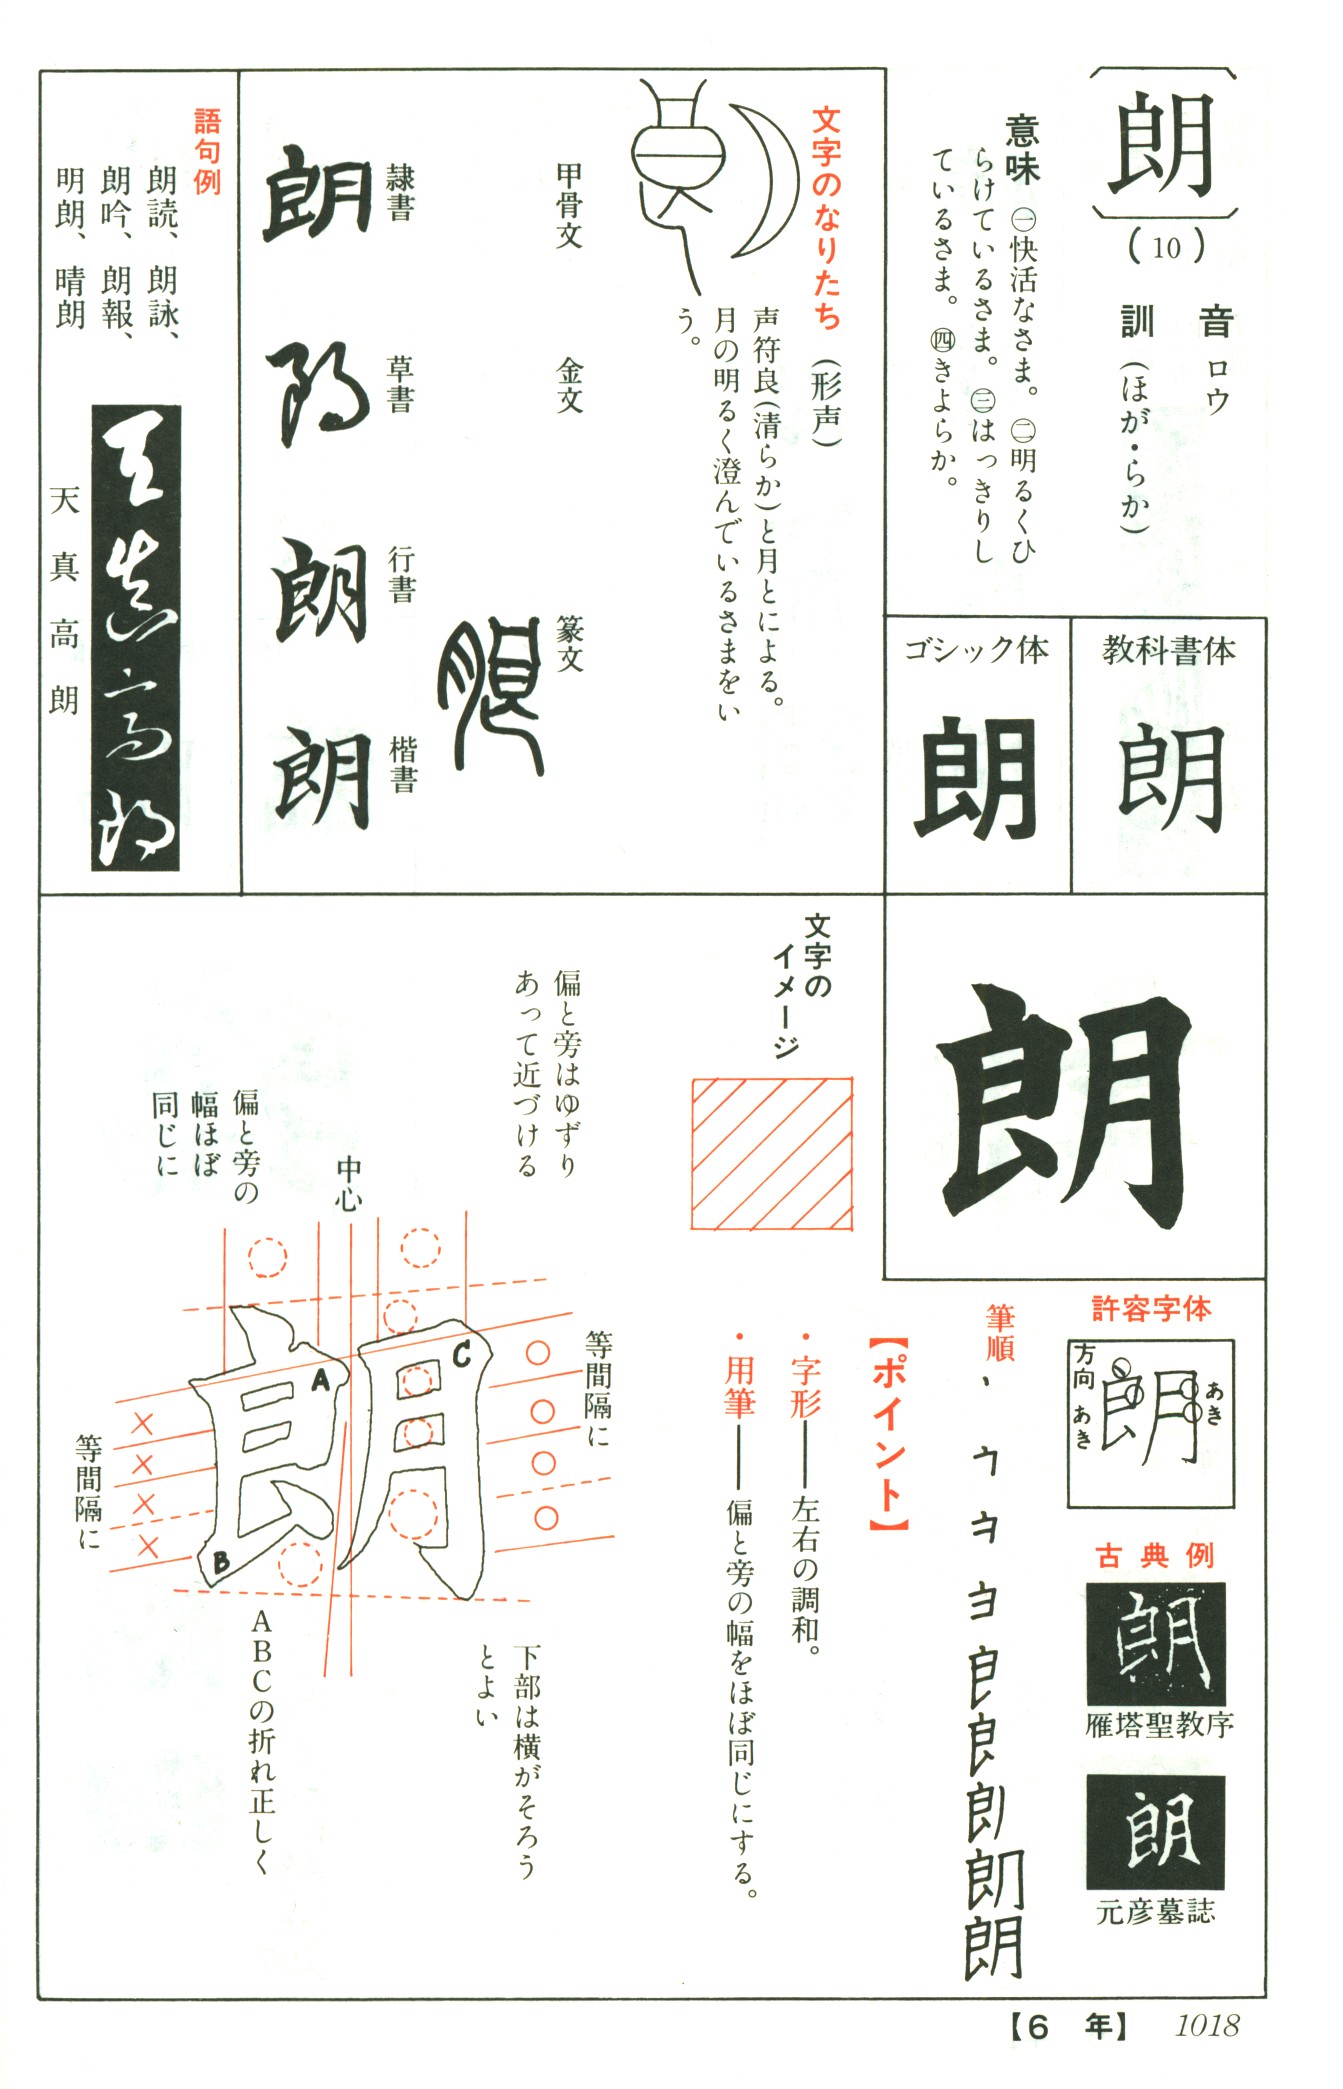 朗
(10)
音 ロウ
訓 (ほが・らか)
意味 ㊀快活なさま。㊁明るくひ
らけているさま。㊂はっきりし
ているさま。㊃きよらか。
教科書体
朗
ゴシック体
朗
文字のなりたち (形声)
声符良(清らか)と月とによる。
月の明るく澄んでいるさまをい
う。
甲骨文
金文
篆文
朗
隷書
朗
草書
朗
行書
朗
楷書
朗
語句例
朗読、朗詠、
朗吟、朗報、
明朗、晴朗
天真高朗
天真高朗
朗
許容字体
方向
あき
朗
あき
古典例
朗
雁塔聖教序
朗
元彦墓誌
筆順
朗
【ポイント】
・字形──左右の調和。
・用筆──偏と旁の幅をほぼ同じにする。
文字の
イメージ
偏と旁はゆずり
あって近づける
中心
偏と旁の
幅ほぼ
同じに
等間隔に
等間隔に
A
B
C
朗
下部は横がそろう
とよい
ABCの折れ正しく
【6 年】 1018